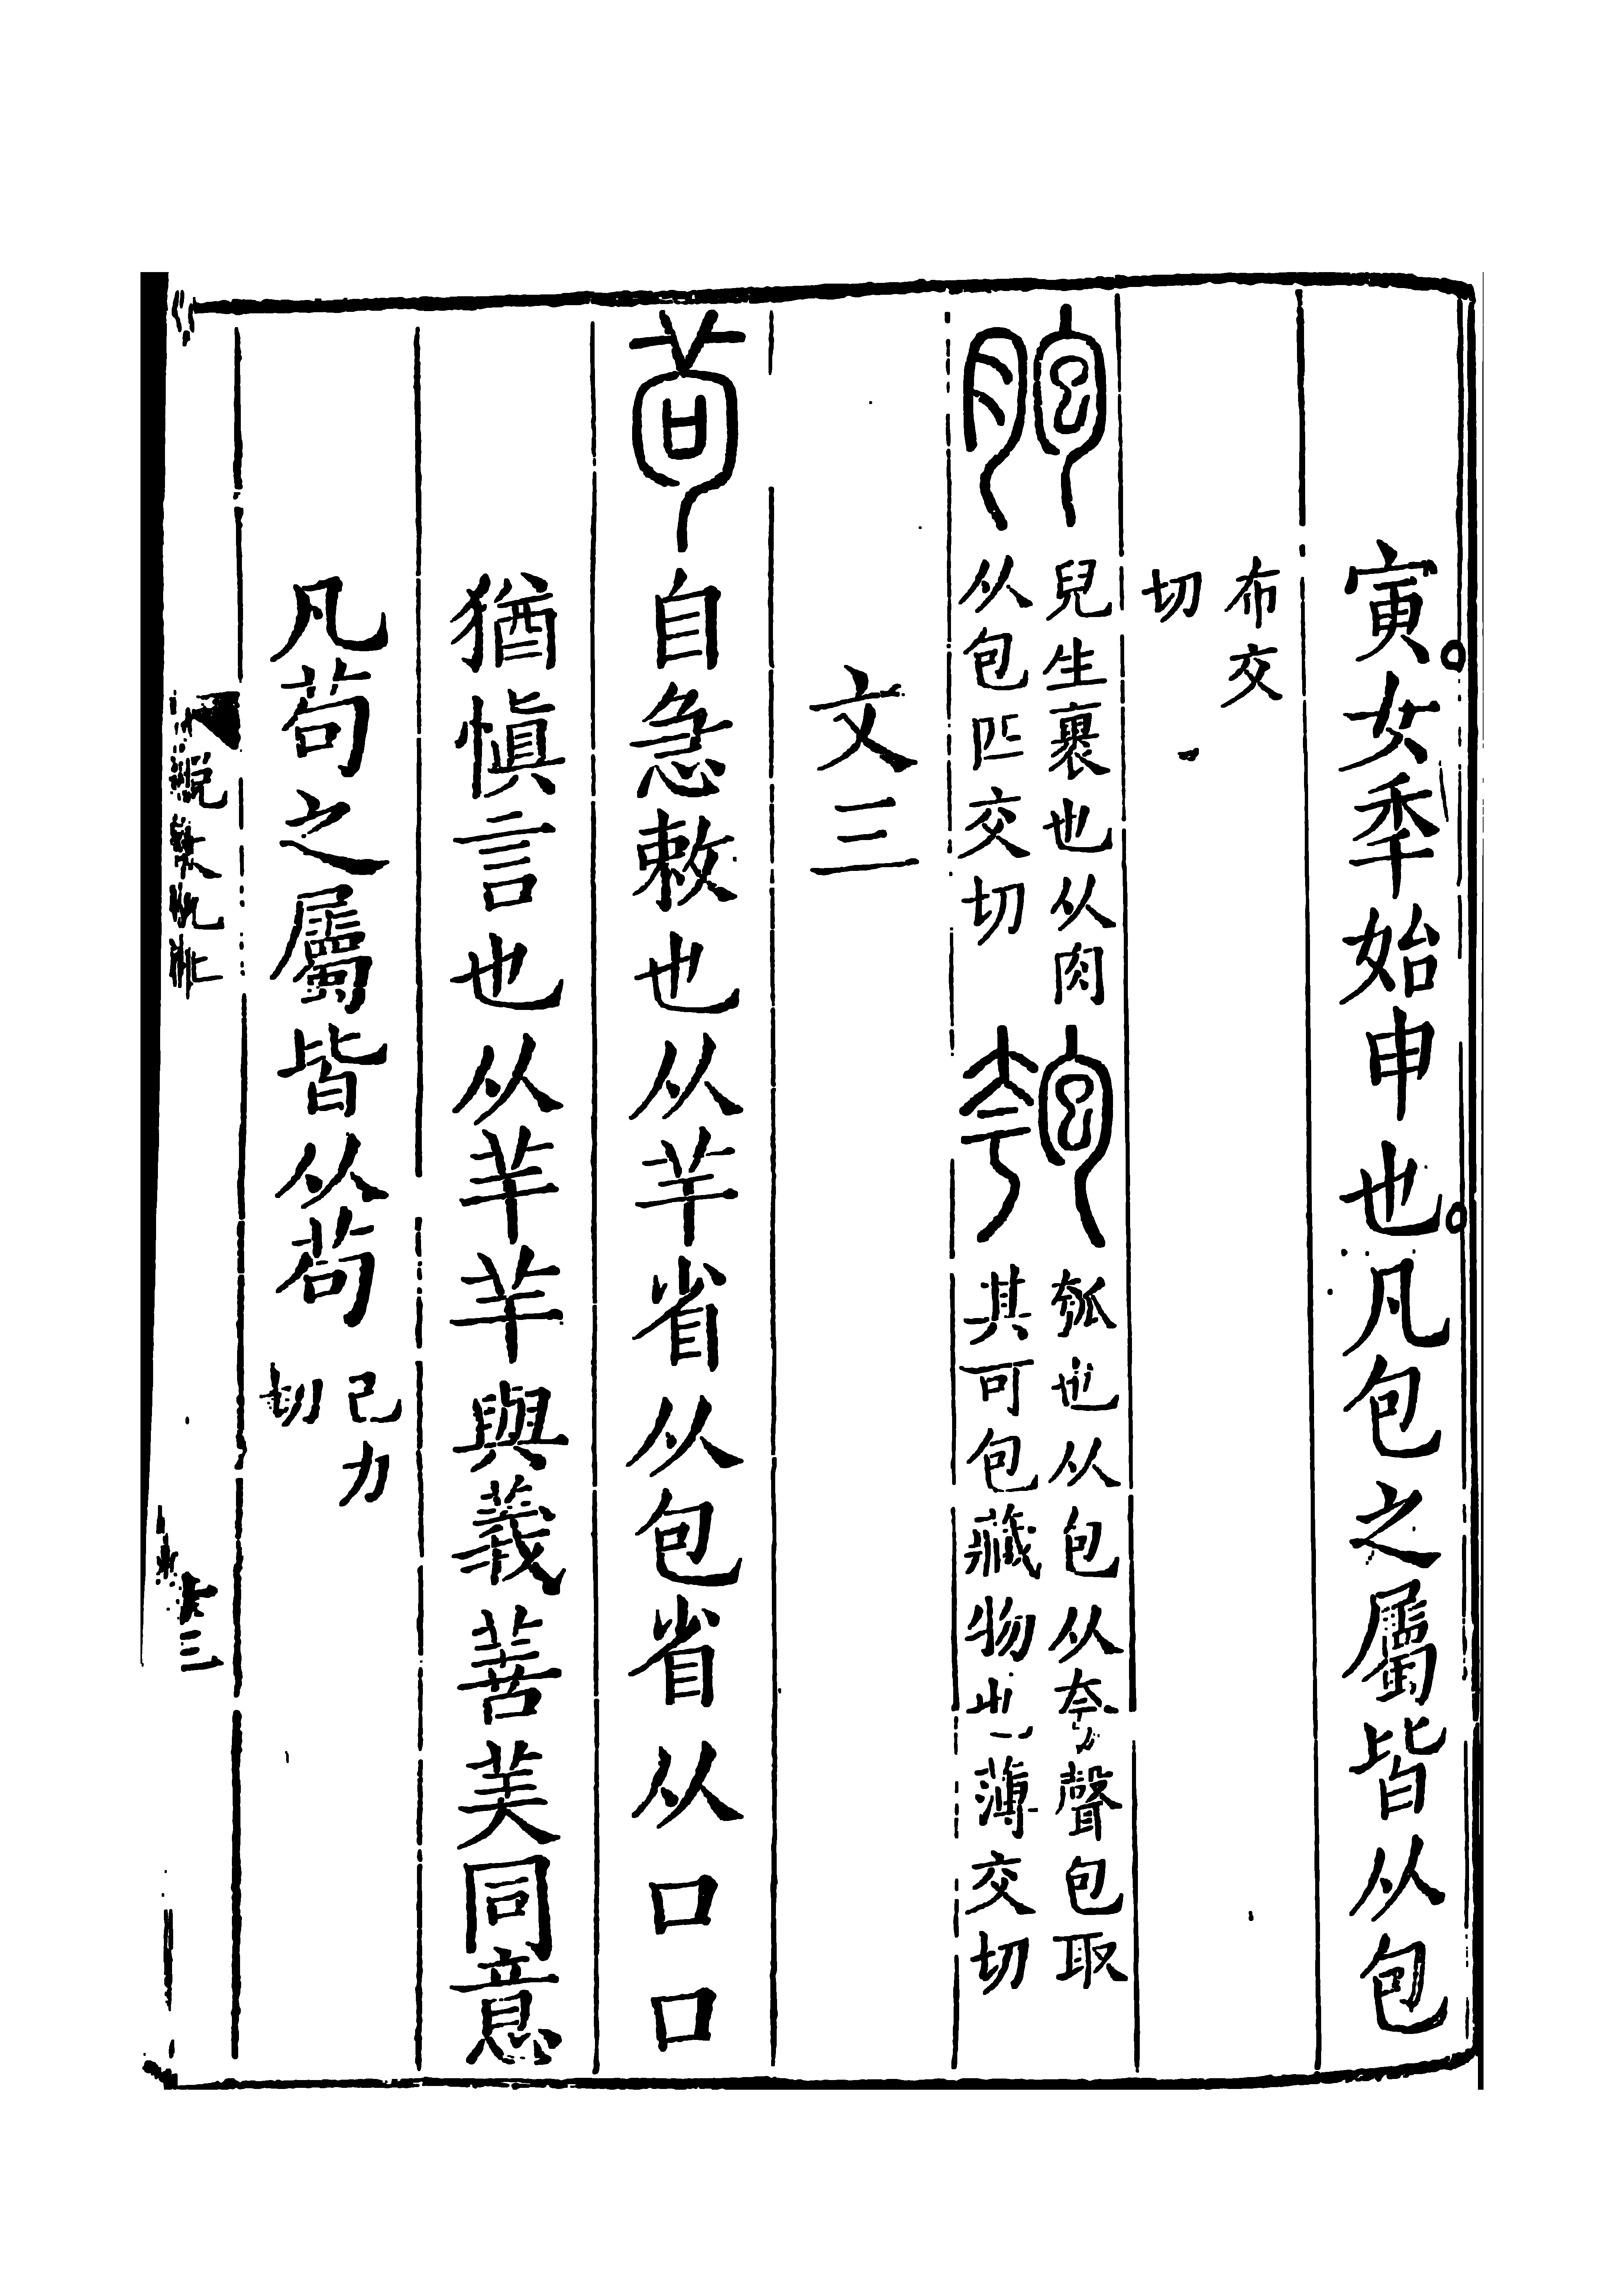 寅女秊始申也凡包之屬皆从包
布交
切
胞 兒生裹也从肉
从包匹交切
匏 瓠也从包从夸聲包取
其可包藏物也薄交切
文三
茍 自急敕也从𦍌省从包省从口口
猶愼言也从𦍌𦍌與義善美同意
凡茍之屬皆从茍 己力
切
說文九上
三